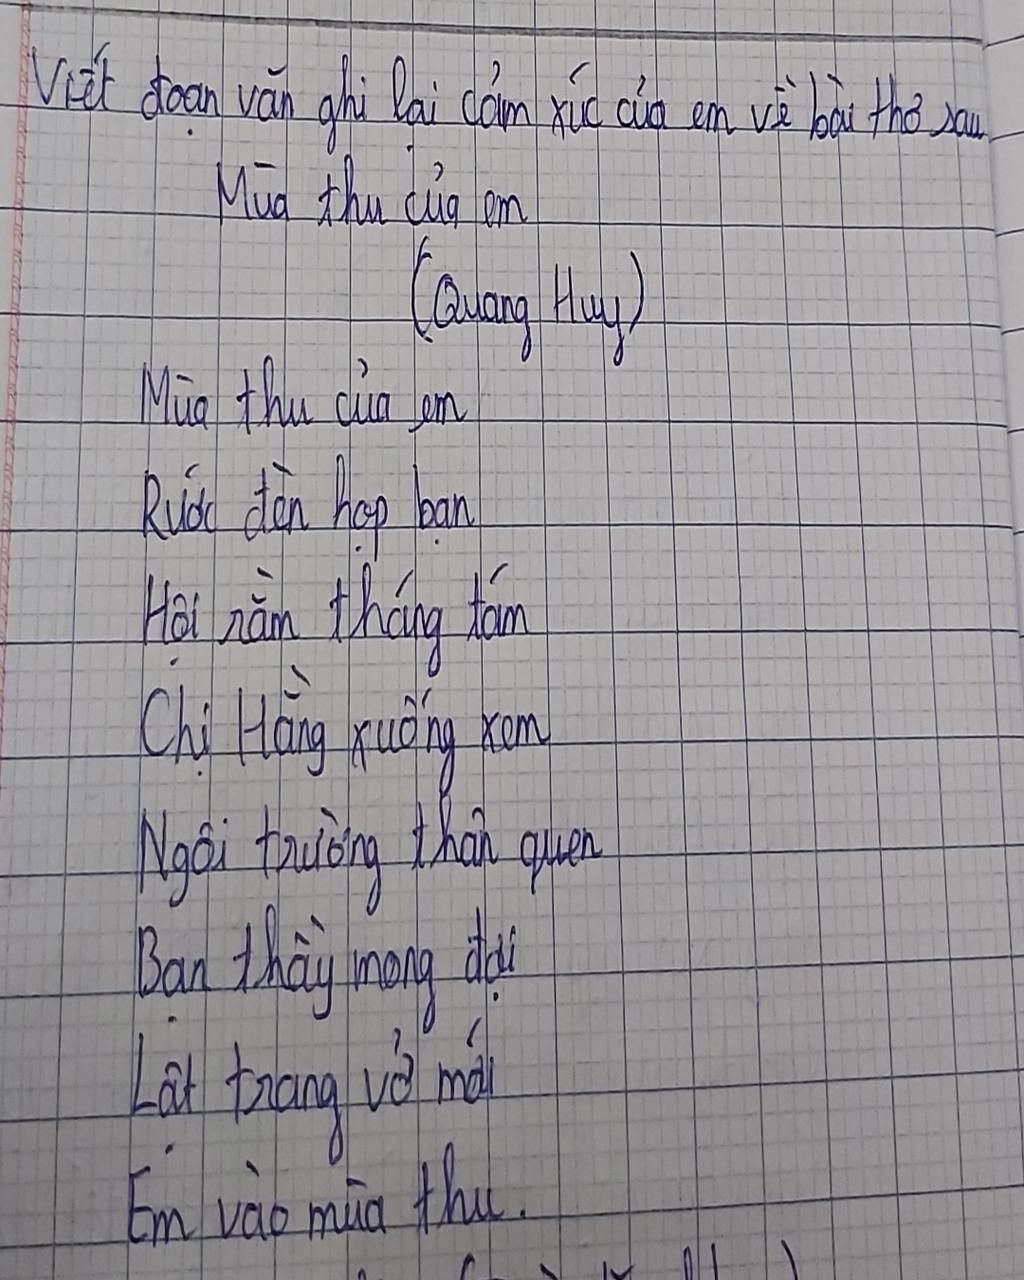 Viết đoạn văn ghi lại cảm xúc của em về bài thơ sau
Mùa thu của em
(Quang Huy)
Mùa thu của em
Rước đèn họp bạn
Hội rằm tháng tám
Chị Hằng xuống xem
Ngôi trường thân quen
Bạn thầy mong đợi
Lật trang vở mới
Em vào mùa thu.